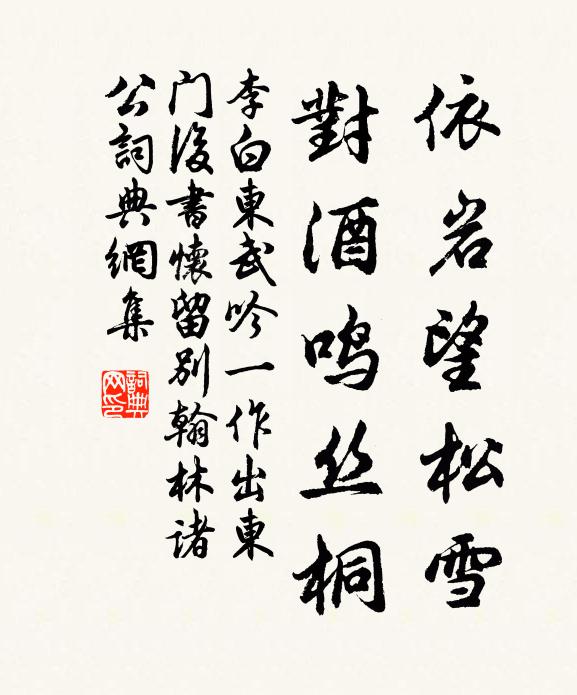 依岩望松雪
對酒鸣丝桐
李白東武吟一作出東
门後書懷留别翰林诸
公詞典網集
詞典
网印